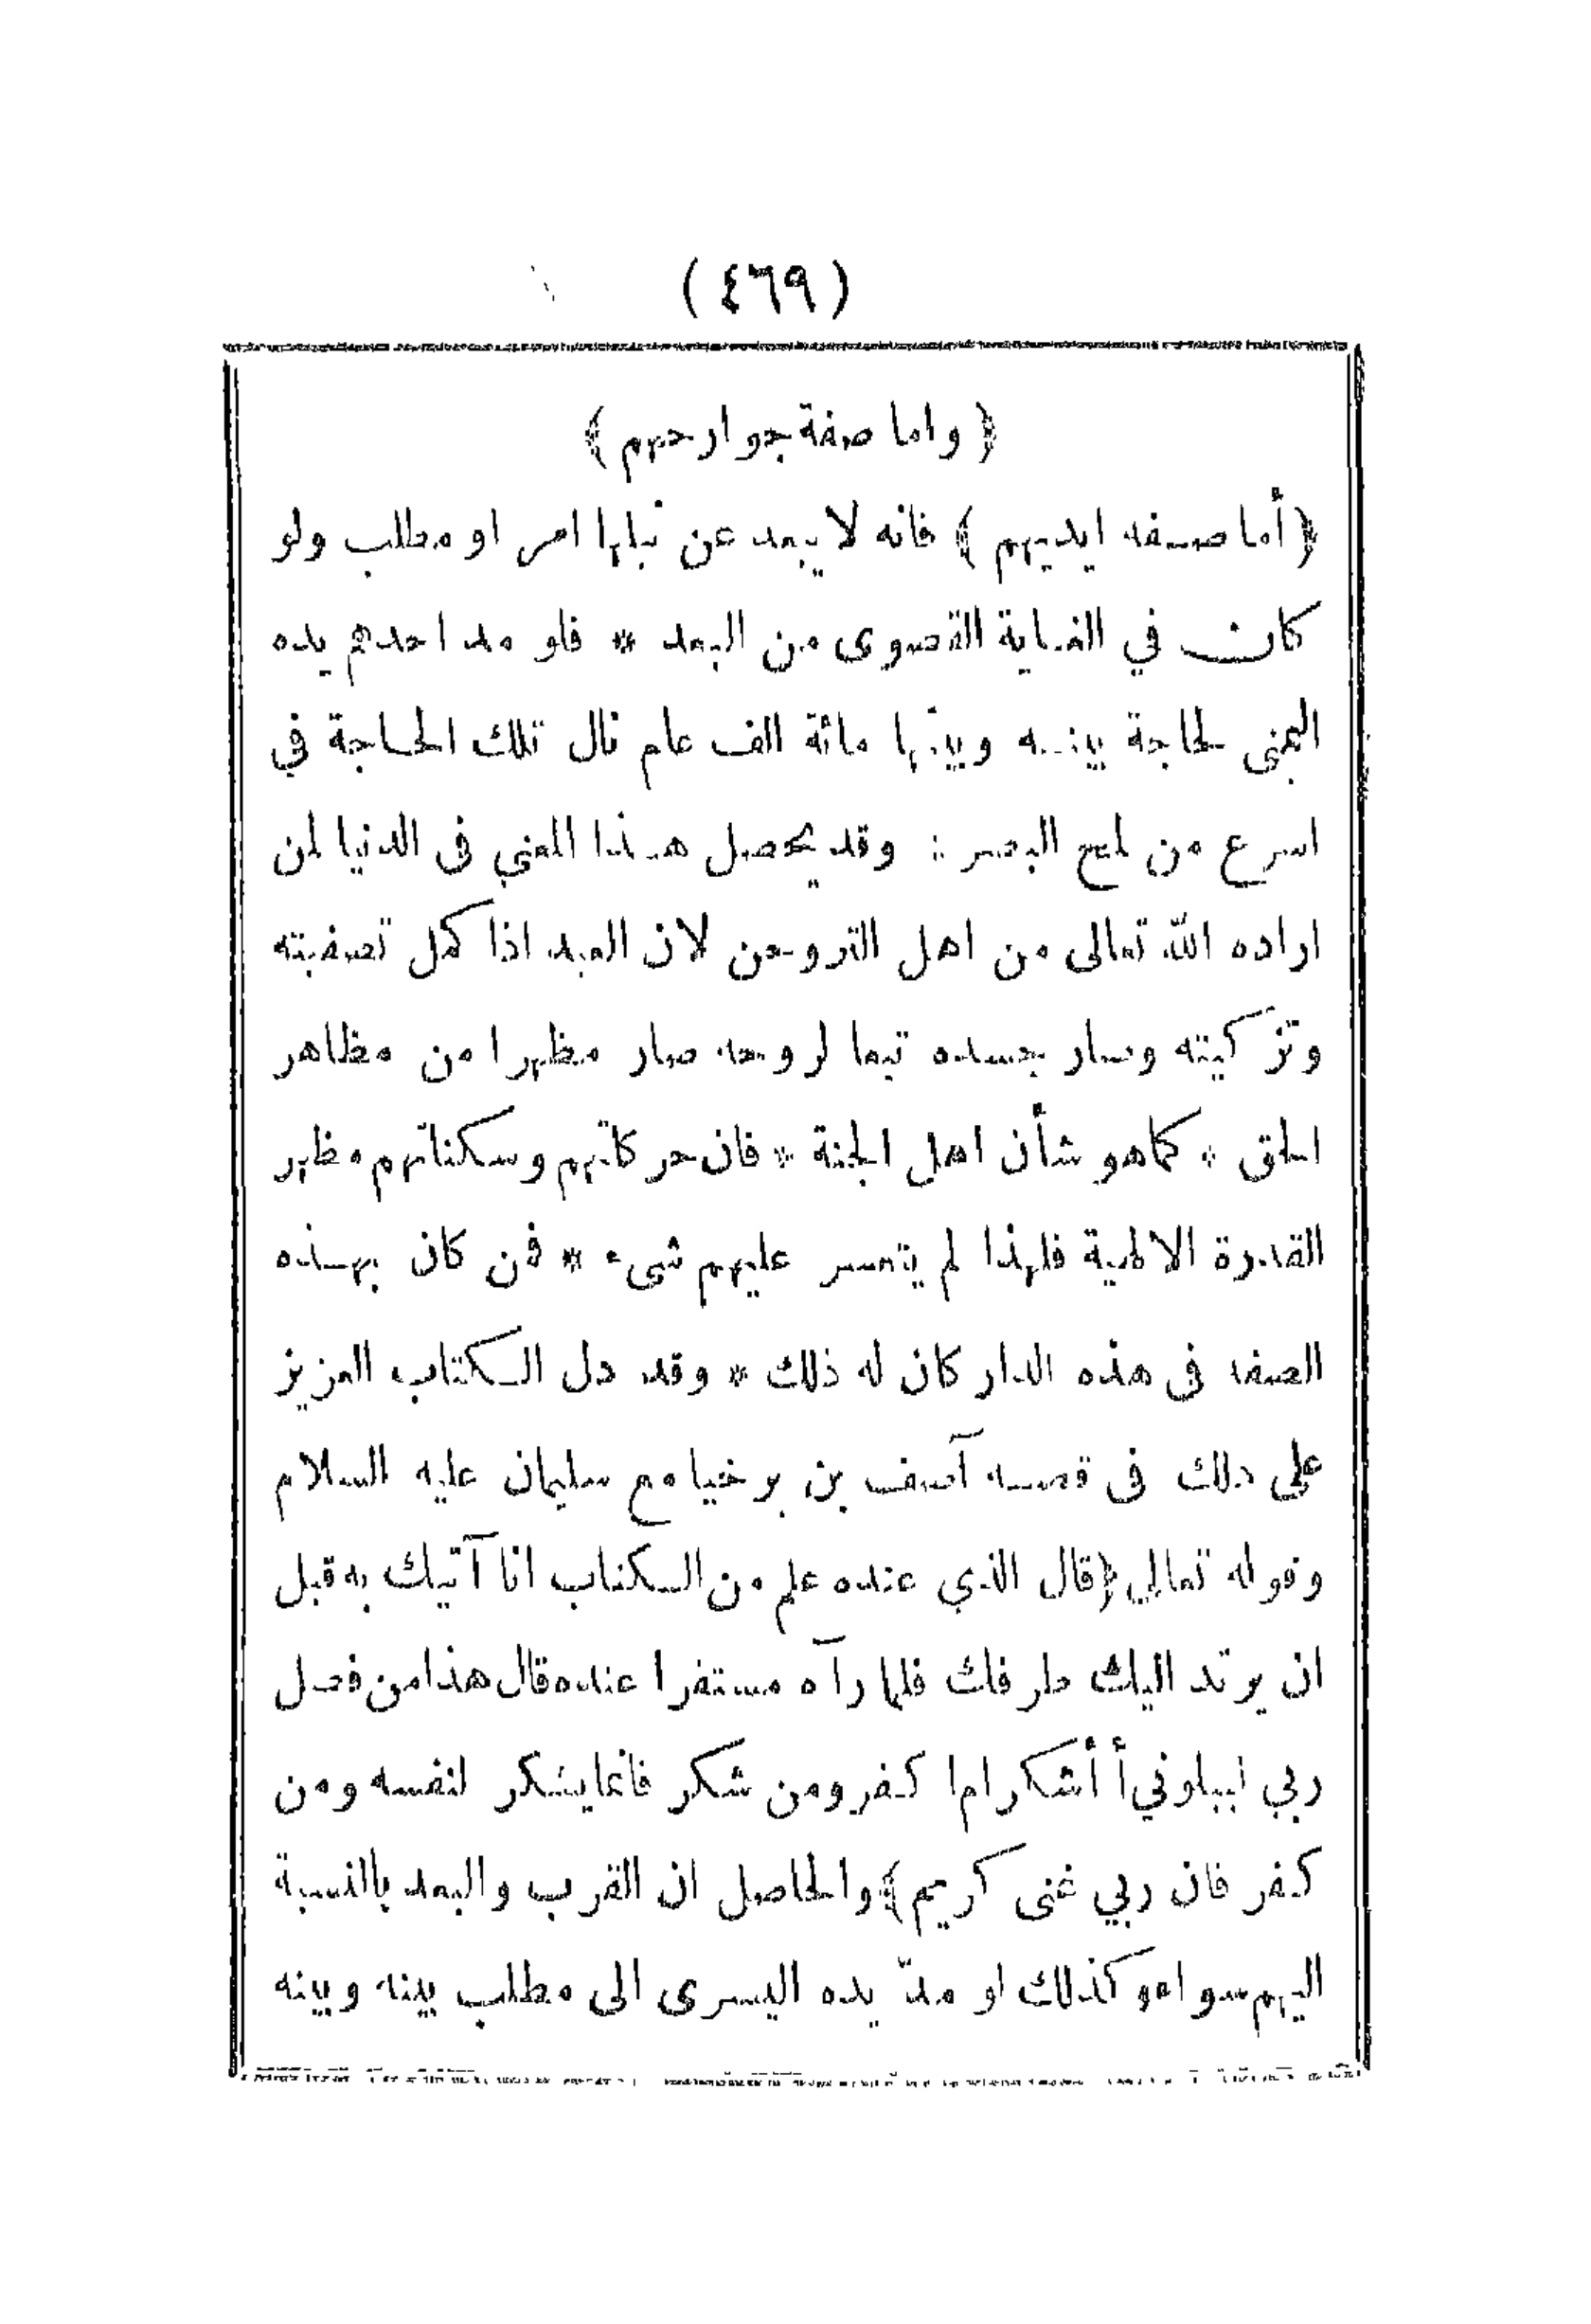 (٤٦٩)
﴿ واما صفة جوارحهم ﴾
﴿ أما صفه ايديهم ﴾ فانه لا يبعد عن نيلها امر او مطلب ولو
كان في الغاية القصوى من البعد * فلو مد احدهم يده
اليمنى لحاجة بينه وبينها مائة الف عام نال تلك الحاجة في
اسرع من لمح البصر : وقد يحصل هذا المعنى فى الدنيا لمن
اراده الله تعالى من اهل التروحن لان العبد اذا كمل تصفيته
وتزكيته وسار بجسده تبعا لروحه صار مظهرا من مظاهر
الحق * كما هو شأن اهل الجنة * فان حركاتهم وسكناتهم مظهر
القدرة الالهية فلهذا لم يتعسر عليهم شىء * فمن كان بهذه
الصفة فى هذه الدار كان له ذلك * وقد دل الكتاب العزيز
على ذلك فى قصه آصف بن برخيا مع سليمان عليه السلام
وقوله تعالى ﴿قال الذي عنده علم من الكتاب انا آتيك به قبل
ان يرتد اليك طرفك فلما رآه مستقرا عنده قال هذا من فضل
ربي ليبلوني أ أشكر ام ا كفر ومن شكر فانما يشكر لنفسه ومن
كفر فان ربي غنى كريم﴾ والحاصل ان القرب والبعد بالنسبة
اليهم سواء وكذلك لو مدّ يده اليسرى الى مطلب بينه وبينه